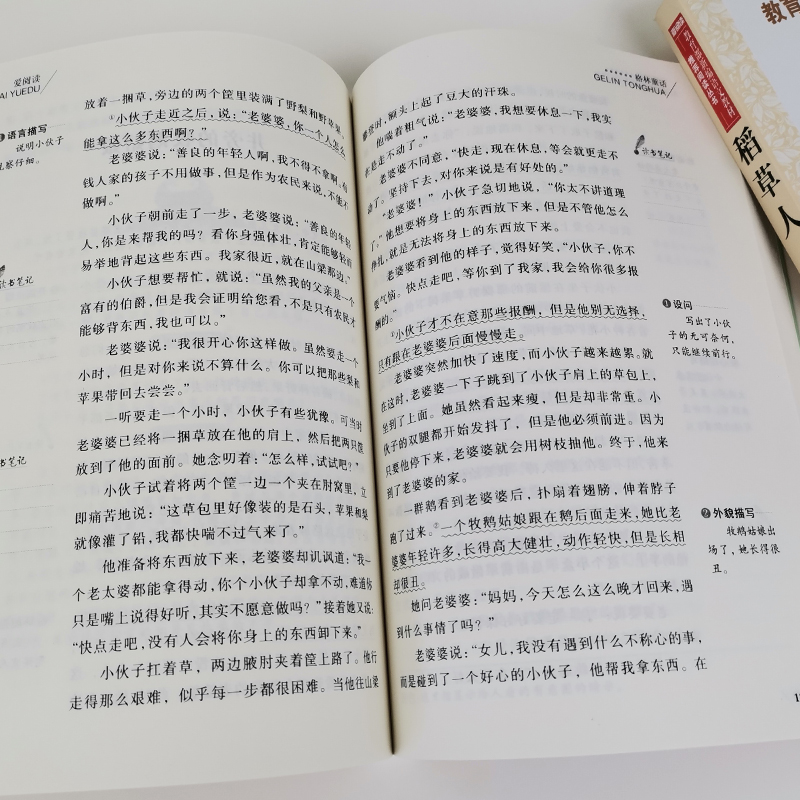 爱阅读
AI YUEDU
放着一捆草，旁边的两个筐里装满了野梨和野苹果。
①小伙子走近之后，说：“老婆婆，你一个人怎么
能拿这么多东西啊？”
老婆婆说：“善良的年轻人啊，我不得不拿啊，有
钱人家的孩子不用做事，但是作为农民来说，不能不
做啊。”
小伙子朝前走了一步，老婆婆说：“善良的年轻
人，你是来帮我的吗？看你身强体壮，肯定能够轻而
易举地背起这些东西。我家很近，就在山梁那边。”
小伙子想要帮忙，就说：“虽然我的父亲是一个
富有的伯爵，但是我会证明给您看，不是只有农民才
能够背东西，我也可以。”
老婆婆说：“我很开心你这样做。虽然要走一个
小时，但是对你来说不算什么。你可以把那些梨和
苹果带回去尝尝。”
一听要走一个小时，小伙子有些犹豫。可当时
老婆婆已经将一捆草放在他的肩上，然后把两只筐
放到了他的面前。她念叨着：“怎么样，试试吧？”
小伙子试着将两个筐一边一个夹在肘窝里，立
即痛苦地说：“这草包里好像装的是石头，苹果和梨
就像灌了铅，我都快喘不过气来了。”
他准备将东西放下来，老婆婆却讥讽道：“我一
个老太婆都能拿得动，你个小伙子却拿不动，难道你
只是嘴上说得好听，其实不愿意做吗？”接着她又说：
“快点走吧，没有人会将你身上的东西卸下来。”
小伙子扛着草，两边腋肘夹着筐上路了。他行
走得那么艰难，似乎每一步都很困难。当他往山梁
①语言描写
说明小伙子
观察仔细。
读书笔记
书笔记
格林童话
GELIN TONGHUA
登时，额头上起了豆大的汗珠。
他喘着粗气说：“老婆婆，我想要休息一下，我实
在是走不动了。”
老婆婆不同意，“快走，现在休息，等会就更走不
动了。坚持下去，对你来说是有好处的。”
“老婆婆！”小伙子急切地说，“你太不讲道理
了。”他想要将身上的东西放下来，但是不管他怎么
挣扎，就是无法将身上的东西放下来。
老婆婆看到他的样子，觉得好笑，“小伙子，你不
要气恼。快点走吧，等你到了我家，我会给你很多报
酬的。”
①小伙子才不在意那些报酬，但是他别无选择，
只有跟在老婆婆后面慢慢走。
老婆婆突然加快了速度，而小伙子越来越累。就
在这时，老婆婆一下子跳到了小伙子肩上的草包上，
坐到了上面。她虽然看起来瘦，但是却非常重。小
伙子的双腿都开始发抖了，但是他必须前进。因为
只要他停下来，老婆婆就会用树枝抽他。终于，他来
到了老婆婆的家。
一群鹅看到老婆婆后，扑扇着翅膀，伸着脖子
跑了过来。②一个牧鹅姑娘跟在鹅后面走来，她比老
婆婆年轻许多，长得高大健壮，动作轻快，但是长相
却很丑。
她问老婆婆：“妈妈，今天怎么这么晚才回来，遇
到什么事情了吗？”
老婆婆说：“女儿，我没有遇到什么不称心的事，
而是碰到了一个好心的小伙子，他帮我拿东西。在
读书笔记
①设问
写出了小伙
子的无可奈何，
只能继续前行。
②外貌描写
牧鹅姑娘出
场了，她长得很
丑。
稻草人